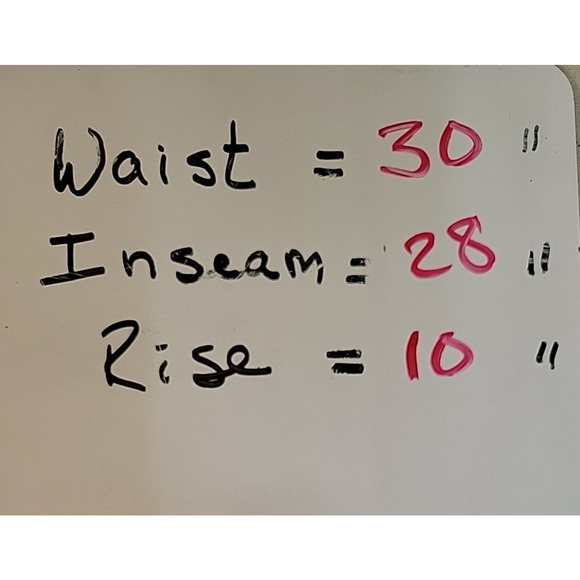 Waist = 30 "
Inseam = 28 "
Rise = 10 "